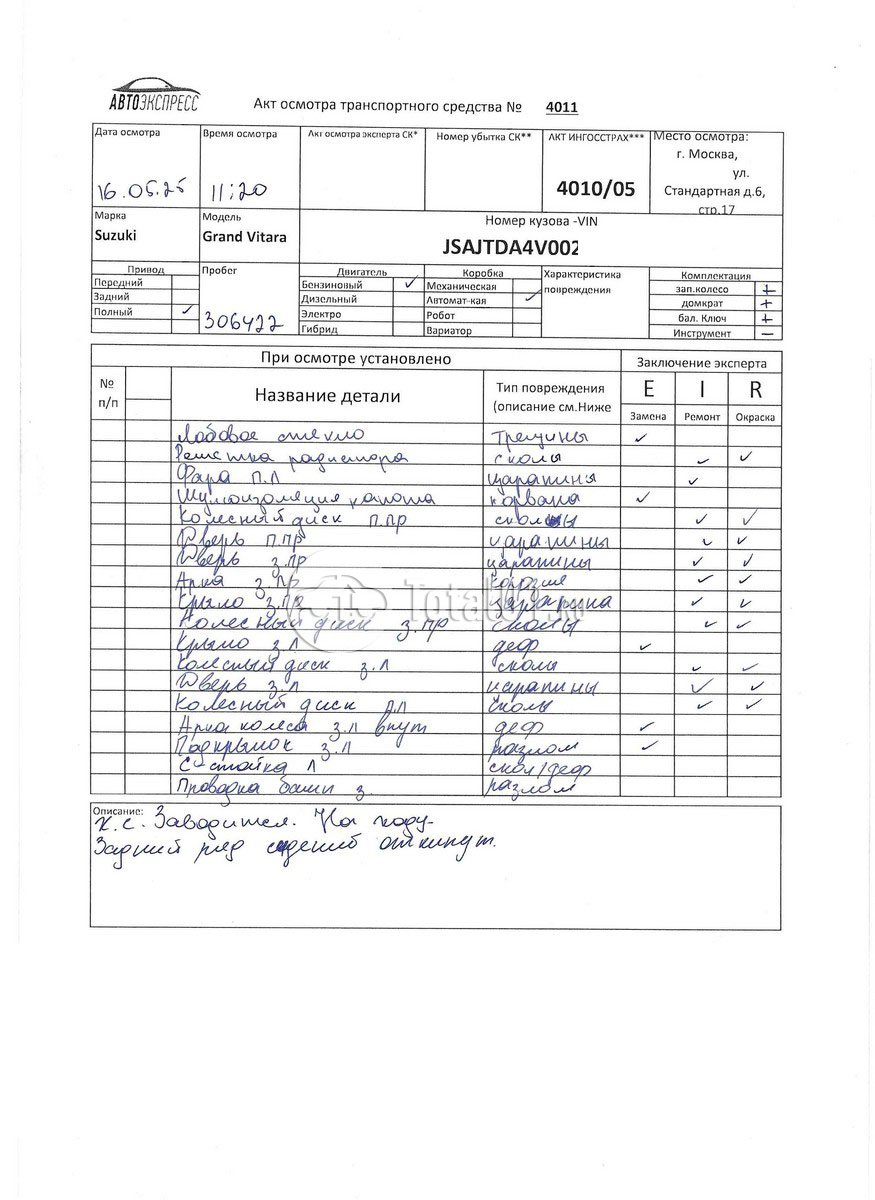 АВТОЭКСПРЕСС
Акт осмотра транспортного средства № 4011
Дата осмотра Время осмотра Акт осмотра эксперта СК* Номер убытка СК** АКТ ИНГОССТРАХ*** Место осмотра:
г. Москва,
ул.
16.05.25 11:20 4010/05 Стандартная д.6,
стр.17
Марка Модель Номер кузова -VIN
Suzuki Grand Vitara JSAJTDA4V002
Привод Пробег Двигатель Коробка Характеристика Комплектация
Передний Бензиновый ✓ Механическая повреждения зап.колесо +
Задний Дизельный Автомат-кая ✓ домкрат +
Полный ✓ 306422 Электро Робот бал. Ключ +
Гибрид Вариатор Инструмент –
При осмотре установлено Заключение эксперта
№ п/п Название детали Тип повреждения (описание см.Ниже E I R
Замена Ремонт Окраска
Лобовое стекло трещины ✓
Решетка радиатора сколы ✓ ✓
Фара п.л царапины ✓
Шумоизоляция капота порвана ✓
Колесный диск п.пр сколы ✓ ✓
Дверь п.пр царапины ✓ ✓
Дверь з.пр царапины ✓ ✓
Арка з.пр ✓ ✓
Крыло з.пр царапина ✓ ✓
Колесный диск з.пр сколы ✓ ✓
Крыло з.л деф ✓
Колесный диск з.л сколы ✓ ✓
Дверь з.л царапины ✓ ✓
Колесный диск п.л сколы ✓ ✓
Арка колеса з.л внут деф ✓
Подкрылок з.л разлом ✓
С-стойка л скол/деф
Проводка з. разлом
Total01.ru
Описание:
К.С. Заводится. На ходу.
Задний ряд сидений откинут.